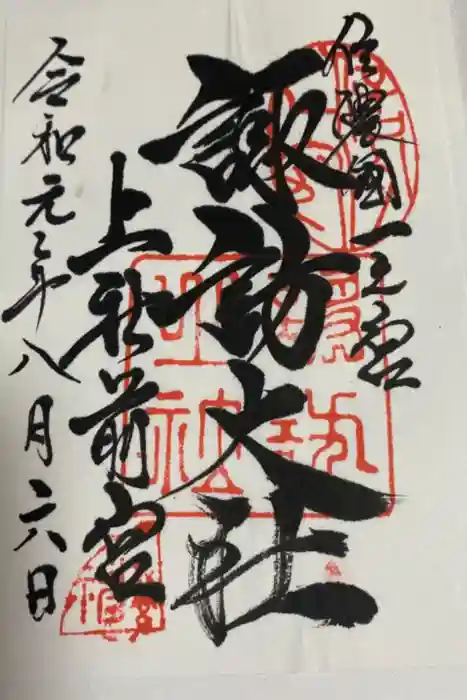 信濃國一之宮
諏訪大社
上社前宮
令和元年八月二六日